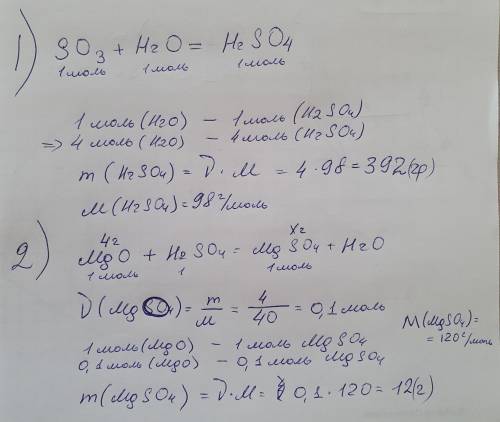 1) SO3 + H2O = H2SO4
1 моль 1 моль 1 моль
1 моль (H2O) – 1 моль (H2SO4)
=> 4 моль (H2O) – 4 моль (H2SO4)
m (H2SO4) = ν · M = 4 · 98 = 392 (гр)
M (H2SO4) = 98 г/моль
4г Xг
2) MgO + H2SO4 = MgSO4 + H2O
1 моль 1 1 моль
ν (MgSO4) = m/M = 4/40 = 0,1 моль
M (MgSO4) = = 120 г/моль
1 моль (MgO) – 1 моль MgSO4
0,1 моль (MgO) – 0,1 моль MgSO4
m (MgSO4) = ν · M = 0,1 · 120 = 12 (г)